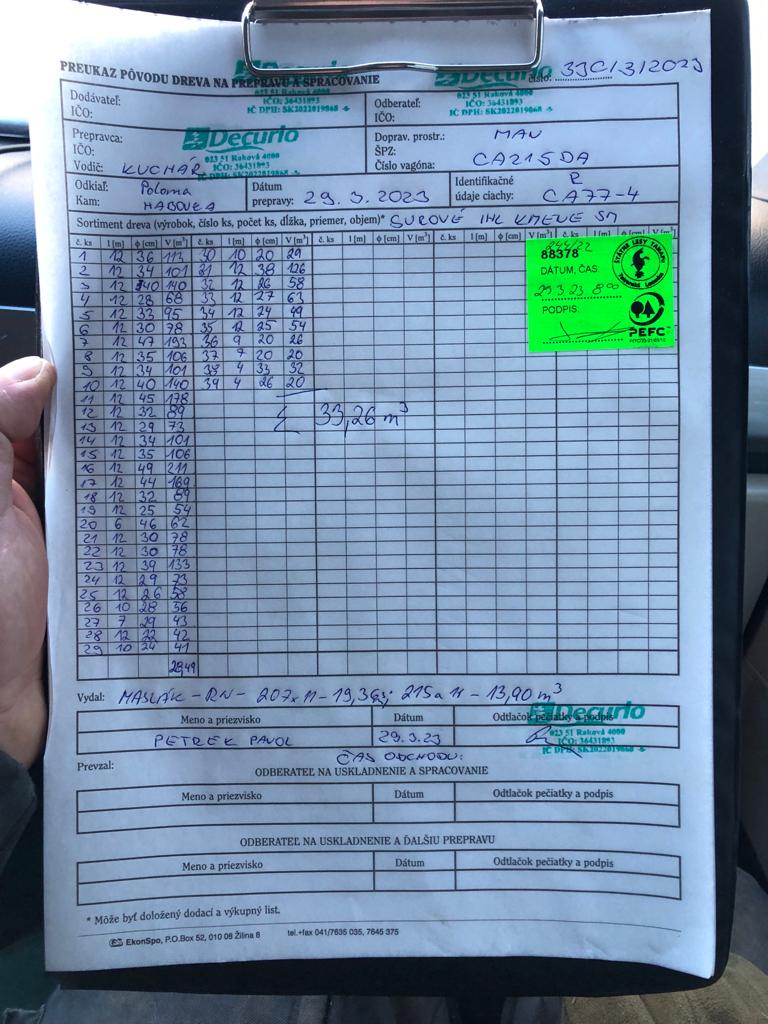 PREUKAZ PÔVODU DREVA NA PREPRAVU A SPRACOVANIE
Decurio
023 51 Raková 4000
IČO: 36431893
IČ DPH: SK2022019868
Decurio
číslo: 33C/3/2023
023 51 Raková 4000
IČO: 36431893
IČ DPH: SK2022019868
Dodávateľ:
IČO:
Odberateľ:
IČO:
Prepravca:
IČO:
Vodič: KUCHÁR
Decurio
023 51 Raková 4000
IČO: 36431893
IČ DPH: SK2022019868
Doprav. prostr.: MAN
ŠPZ:
Číslo vagóna: CA215DA
Odkiaľ: Poloma
Kam: HABOVKA
Dátum
prepravy: 29. 3. 2023
Identifikačné R
údaje ciachy: CA77-4
Sortiment dreva (výrobok, číslo ks, počet ks, dĺžka, priemer, objem)* SUROVÉ IHL KMENE SM
č. ks l [m] φ [cm] V [m³] č. ks l [m] φ [cm] V [m³] č. ks l [m] φ [cm] V [m³] č. ks l [m] φ [cm] V [m³] č. ks l [m] φ [cm] V [m³]
1 12 36 113 30 10 20 29
2 12 34 101 31 12 38 126
3 12 40 140 32 12 26 58
4 12 28 68 33 12 27 63
5 12 33 95 34 12 24 49
6 12 30 78 35 12 25 54
7 12 47 193 36 9 20 26
8 12 35 106 37 7 20 20
9 12 34 101 38 4 33 32
10 12 40 140 39 4 26 20
11 12 45 178
12 12 32 89
13 12 29 73
14 12 34 101
15 12 35 106
16 12 49 211
17 12 44 169
18 12 32 89
19 12 25 54
20 6 46 62
21 12 30 78
22 12 30 78
23 12 39 133
24 12 29 73
25 12 26 58
26 10 28 56
27 7 29 43
28 12 22 42
29 10 24 41
28,49
Σ 33,26 m³
244/22
88378
DÁTUM, ČAS
29.3.23 8:00
PODPIS:
ŠTÁTNE LESY TANAPu
Tatranská Lomnica
PEFC™
Vydal: MASLIÁK - RN - 207x 11 - 19,36; 215a 11 - 13,90 m³
Meno a priezvisko Dátum Odtlačok pečiatky a podpis
Decurio
023 51 Raková 4000
IČO: 36431893
IČ DPH: SK2022019868
PETREK PAVOL 29.3.23
ČAS ODCHODU:
Prevzal:
ODBERATEĽ NA USKLADNENIE A SPRACOVANIE
Meno a priezvisko Dátum Odtlačok pečiatky a podpis
ODBERATEĽ NA USKLADNENIE A ĎALŠIU PREPRAVU
Meno a priezvisko Dátum Odtlačok pečiatky a podpis
* Môže byť doložený dodací a výkupný list.
EkonSpo, P.O.Box 52, 010 08 Žilina 8 tel.+fax 041/7635 035, 7645 375